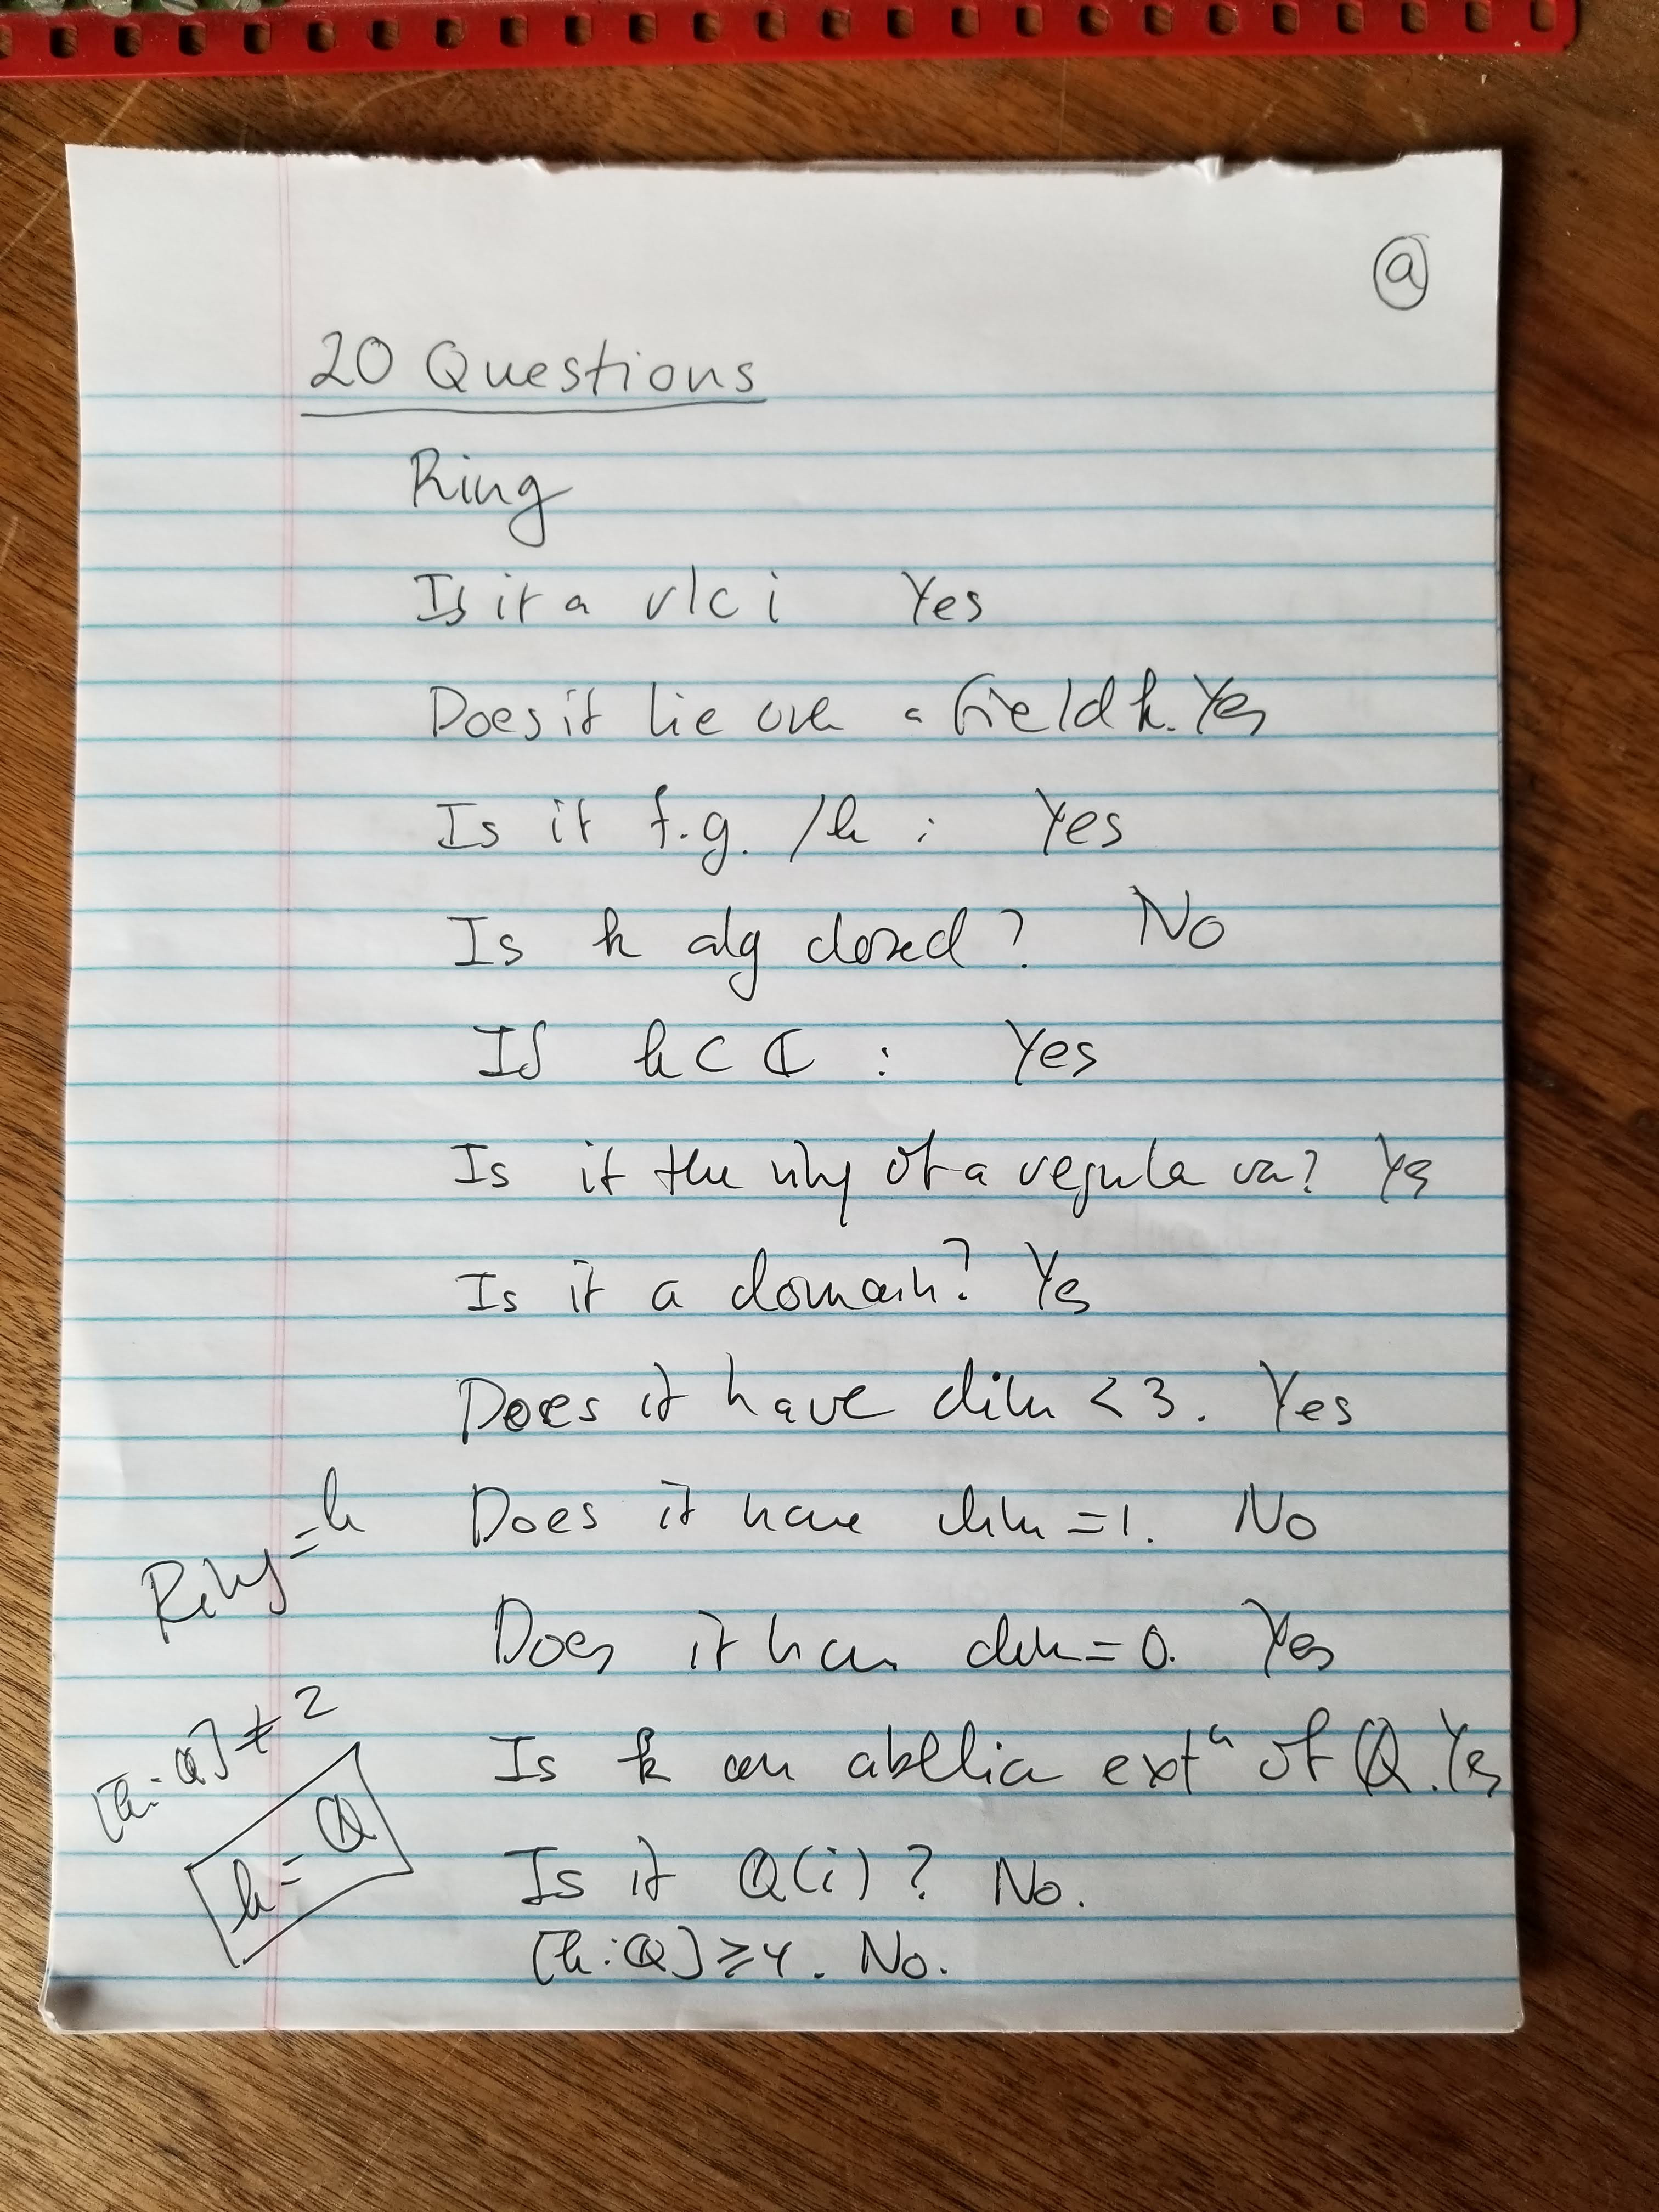 a
20 Questions
Ring
Is it a vlci Yes
Does it lie over a field k. Yes
Is it f.g. /k : Yes
Is k alg closed? No
Is k ⊂ ℂ : Yes
Is it the ring of a regula var? Yes
Is it a domain? Yes
Does it have dim < 3. Yes
Ring = k
Does it have dim = 1. No
Does it have dim = 0. Yes
[k:ℚ] ≠ 2
Is k an abelian extⁿ of ℚ. Yes
k = ℚ
Is it ℚ(i)? No.
[k:ℚ] ≥ 4. No.